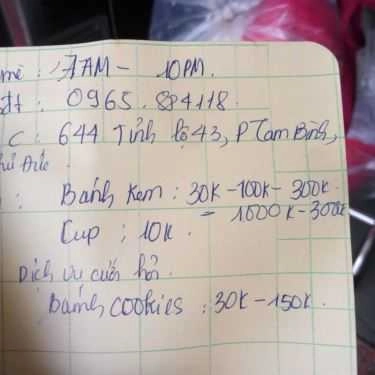 mê : 7AM - 10PM.
đt : 0965.884118.
C : 644 Tỉnh lộ 43, P Tam Bình,
hủ Đức
: Bánh kem : 30K - 100K - 300K.
- 1000K - 300K
Cup : 10K.
Dịch vụ cưới hỏi.
Bánh cookies : 30K - 150K.